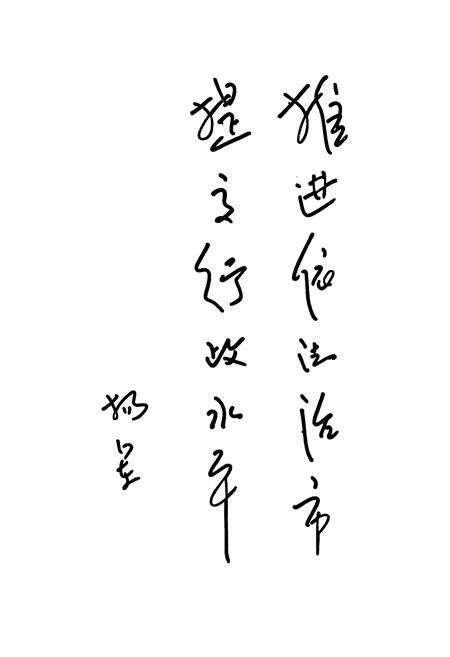 推进依法治市
提高行政水平
杨